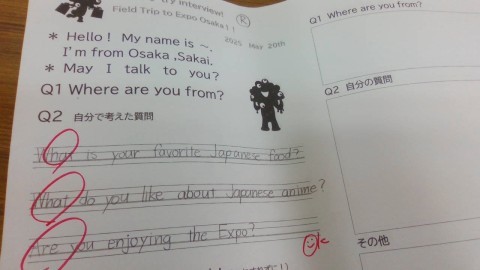 try interview!
Field Trip to Expo Osaka!!
R
2025 May 20th
* Hello! My name is ~.
I'm from Osaka ,Sakai.
* May I talk to you?
Q1 Where are you from?
Q2 自分で考えた質問
What is your favorite Japanese food?
What do you like about Japanese anime?
Are you enjoying the Expo?
Q1 Where are you from?
Q2 自分の質問
その他